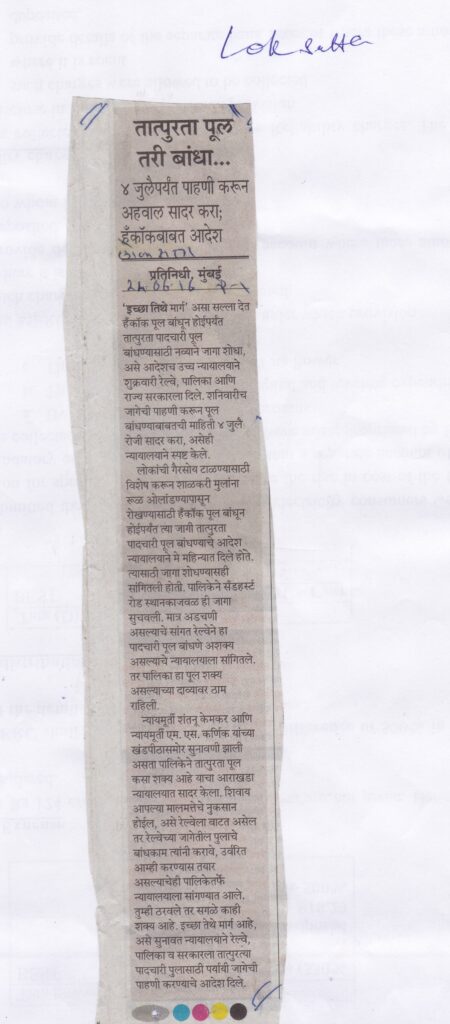 Lok satta
तात्पुरता पूल
तरी बांधा...
४ जुलैपर्यंत पाहणी करून
अहवाल सादर करा;
हँकॉकबाबत आदेश
प्रतिनिधी, मुंबई
'इच्छा तिथे मार्ग' असा सल्ला देत
हँकॉक पूल बांधून होईपर्यंत
तात्पुरता पादचारी पूल
बांधण्यासाठी नव्याने जागा शोधा,
असे आदेशच उच्च न्यायालयाने
शुक्रवारी रेल्वे, पालिका आणि
राज्य सरकारला दिले. शनिवारीच
जागेची पाहणी करून पूल
बांधण्याबाबतची माहिती ४ जुलै
रोजी सादर करा, असेही
न्यायालयाने स्पष्ट केले.
लोकांची गैरसोय टाळण्यासाठी
विशेष करून शाळकरी मुलांना
रूळ ओलांडण्यापासून
रोखण्यासाठी हँकॉक पूल बांधून
होईपर्यंत त्या जागी तात्पुरता
पादचारी पूल बांधण्याचे आदेश
न्यायालयाने मे महिन्यात दिले होते.
त्यासाठी जागा शोधण्यासही
सांगितली होती. पालिकेने सँडहर्स्ट
रोड स्थानकाजवळ ही जागा
सुचवली. मात्र अडचणी
असल्याचे सांगत रेल्वेने हा
पादचारी पूल बांधणे अशक्य
असल्याचे न्यायालयाला सांगितले.
तर पालिका हा पूल शक्य
असल्याच्या दाव्यावर ठाम
राहिली.
न्यायमूर्ती शंतनू केमकर आणि
न्यायमूर्ती एम. एस. कर्णिक यांच्या
खंडपीठासमोर सुनावणी झाली
असता पालिकेने तात्पुरता पूल
कसा शक्य आहे याचा आराखडा
न्यायालयात सादर केला. शिवाय
आपल्या मालमत्तेचे नुकसान
होईल, असे रेल्वेला वाटत असेल
तर रेल्वेच्या जागेतील पुलाचे
बांधकाम त्यांनी करावे, उर्वरित
आम्ही करण्यास तयार
असल्याचेही पालिकेतर्फे
न्यायालयाला सांगण्यात आले.
तुम्ही ठरवले तर सगळे काही
शक्य आहे. इच्छा तेथे मार्ग आहे,
असे सुनावत न्यायालयाने रेल्वे,
पालिका व सरकारला तात्पुरत्या
पादचारी पुलासाठी पर्यायी जागेची
पाहणी करण्याचे आदेश दिले.